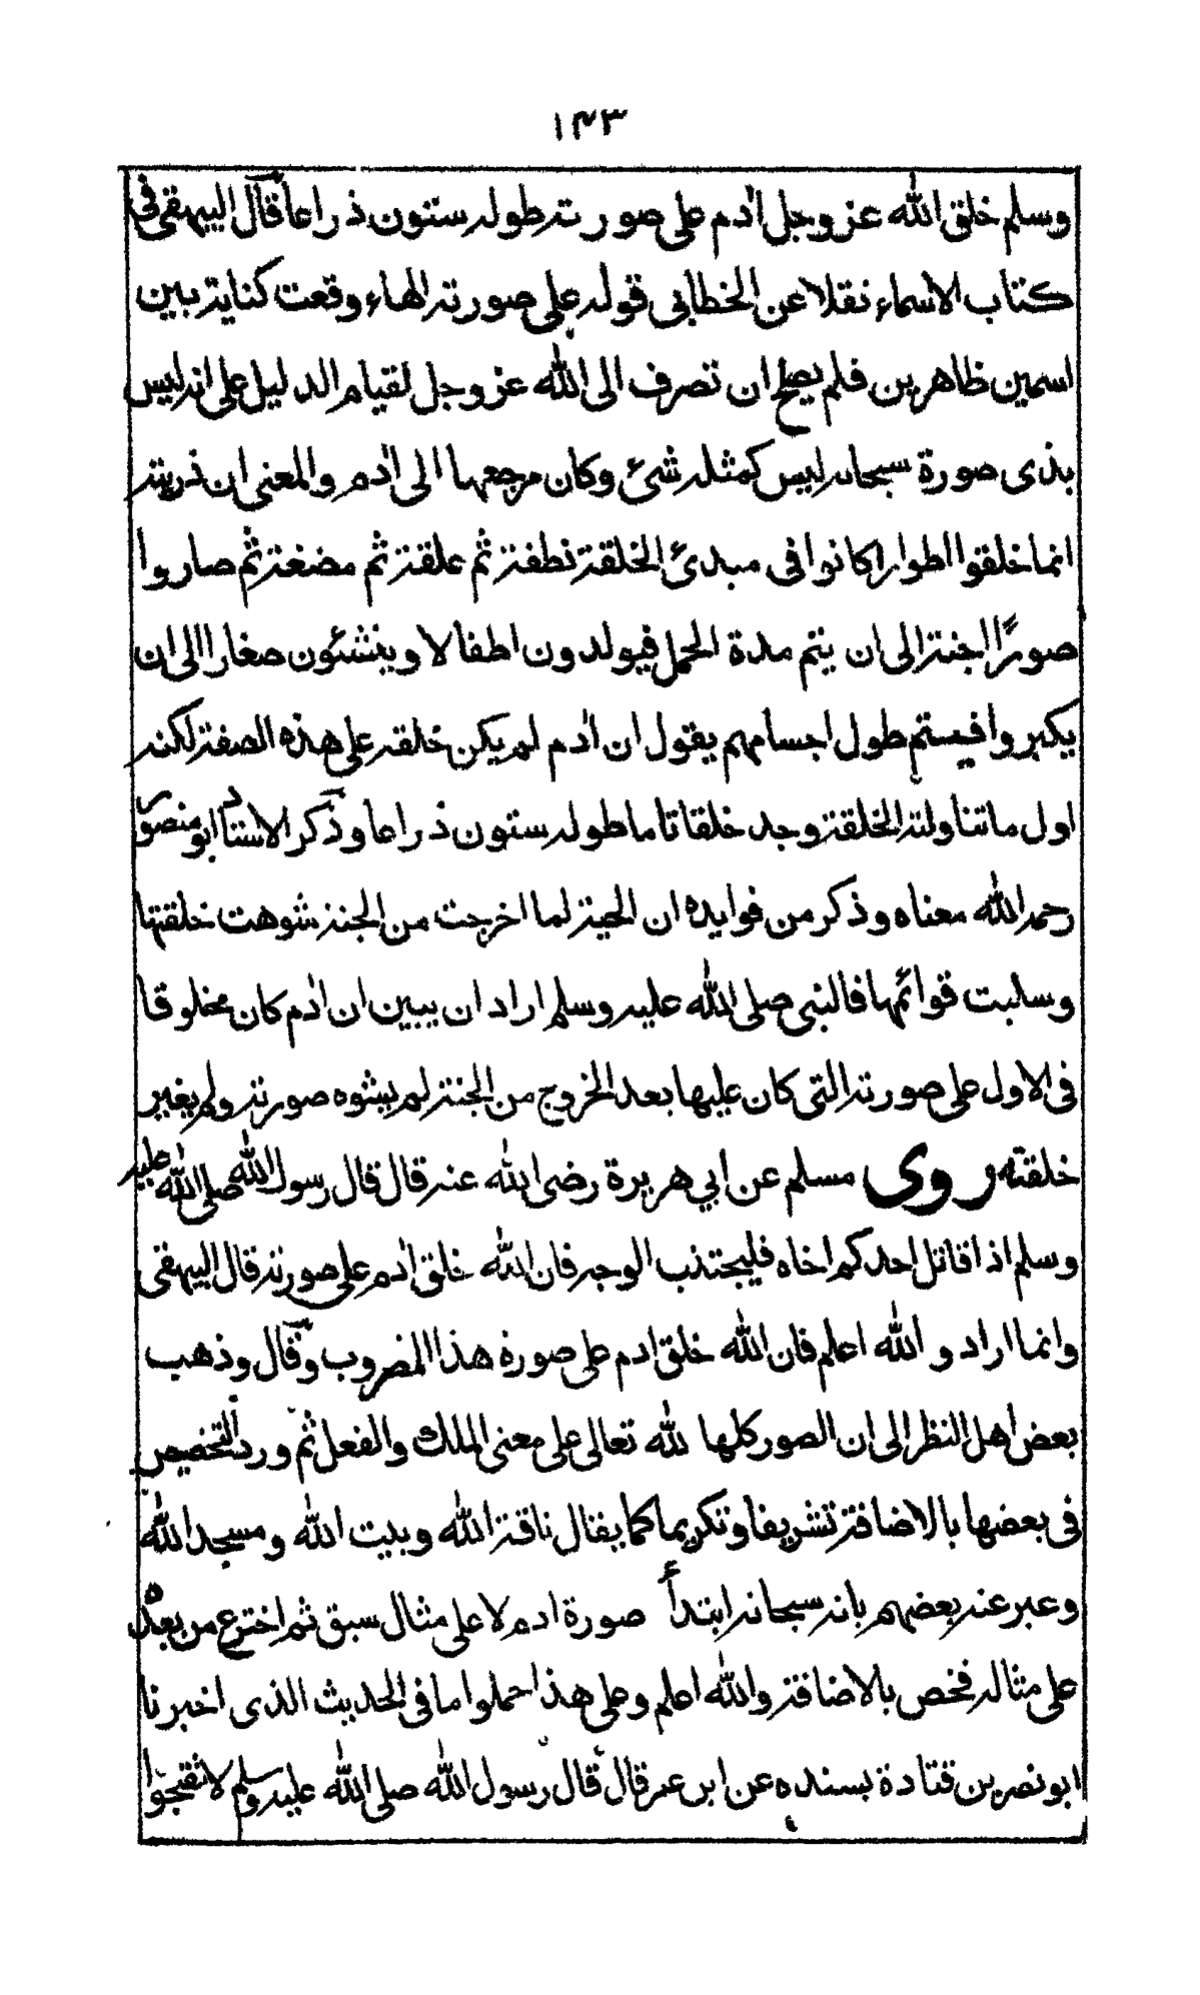 ١٤٣
وسلم خلق الله عز وجل اٰدم على صورته طوله ستون ذراعا قال البيهقى فى
كتاب الاسماء نقلا عن الخطابى قوله على صورته الهاء وقعت كناية بين
اسمين ظاهرين فلم يصلح ان تصرف الى الله عز وجل لقيام الدليل على انه ليس
بذى صورة سبحانه ليس كمثله شئ وكان مرجعها الى اٰدم والمعنى ان ذريته
انما خلقوا اطوارا كانوا فى مبدئ الخلقة نطفة ثم علقة ثم مضغة ثم صاروا
صورًا اجنة الى ان يتم مدة الحمل فيولدون اطفالا وينشئون صغارا الى ان
يكبروا فيستتم طول اجسامهم يقول ان اٰدم لم يكن خلقه على هذه الصفة لكنه
اول ما تناولته الخلقة وجد خلقا تاما طوله ستون ذراعا وذكر الاستاد ابو منصور
رحمه الله معناه وذكر من فوايده ان الحية لما اخرجت من الجنة شوهت خلقتها
وسلبت قوائمها فالنبى صلى الله عليه وسلم اراد ان يبين ان اٰدم كان مخلوقا
فى الاول على صورته التى كان عليها بعد الخروج من الجنة لم يشوه صورته ولم يغير
خلقته روى مسلم عن ابي هريرة رضى الله عنه قال قال رسول الله صلى الله عليه
وسلم اذا قاتل احدكم اخاه فليجتنب الوجه فان الله خلق اٰدم على صورته قال البيهقى
وانما اراد و الله اعلم فان الله خلق ادم على صورة هذا المضروب وقال وذهب
بعض أهل النظر الى ان الصور كلها لله تعالى على معنى الملك والفعل ثم ورد التخصيص
فى بعضها بالاضافة تشريفا وتكريما كما يقال ناقة الله وبيت الله ومسجد الله
وعبر عنه بعضهم بانه سبحانه ابتدأ صورة ادم لا على مثال سبق ثم اخترع من بعده
على مثاله فخص بالاضافة والله اعلم وعلى هذا حملوا ما فى الحديث الذى اخبرنا
ابو نصر بن قتادة بسنده عن ابن عمر قال قال رسول الله صلى الله عليه وسلم لا تقبحوا